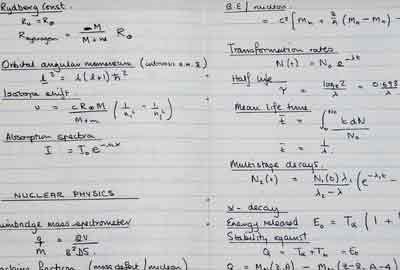 Rydberg Const.
R∞ = R∞
R hydrogen = M / M + m R∞
Orbital angular momentum (intrinsic
l² = l(l+1) ħ²
Isotope shift.
ν = c R∞ M / M+m ( 1/n₁² - 1/n₂² )
Absorption spectra
I = I₀ e
NUCLEAR PHYSICS
mass spectrometer
q/m =
fraction (mass defect / nucleon)
B.E / nucleon
= c² [ Mn + Z/A (MH - Mn) -
Transformation rates
N(t) = N₀ e^-λt
Half life
τ = loge2 / λ = 0.693
Mean life time
t̄ = ∫ t dN / N₀
t̄ = 1/λ
Multistage decays.
N₂(t) = N₁(0) λ₁ / λ₂ - λ₁ ( e^-λ₁t -
α - decay
Energy released E₀ = Tα ( 1 +
Stability against
Q = Tα + Tb = E₀
Q = (Z, A) - (Z-2, A-4)